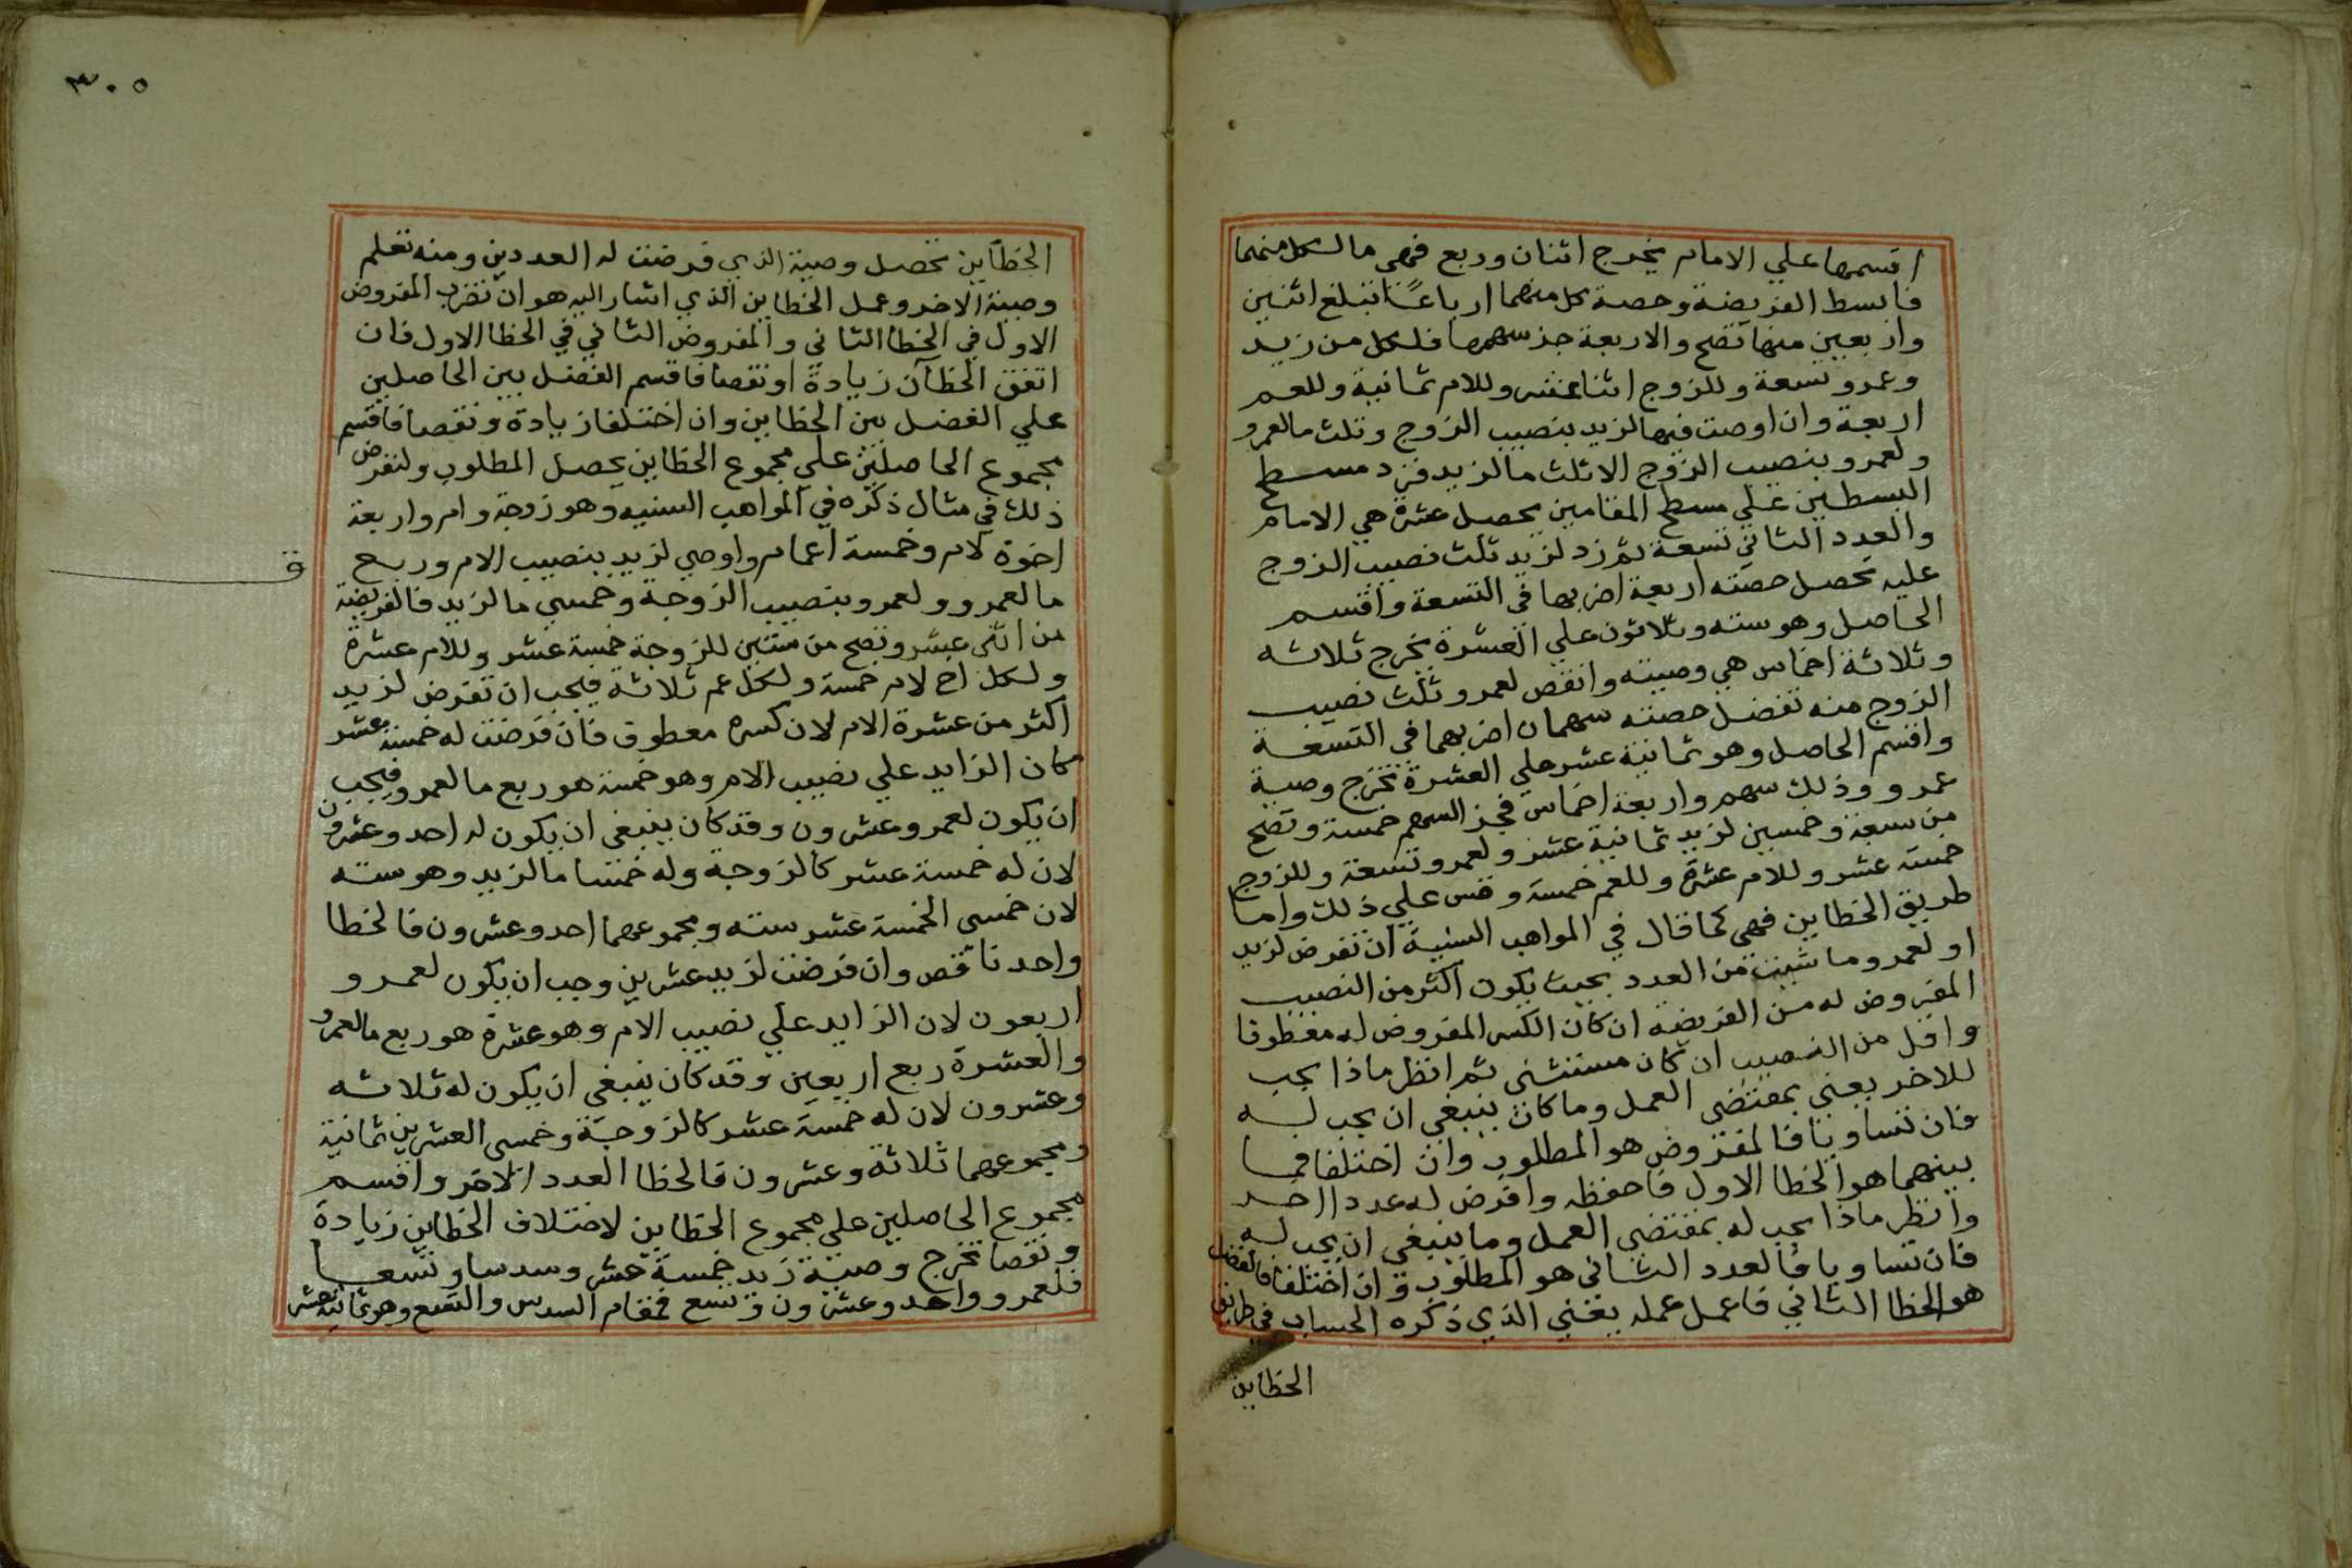 اقسمها علي الامام يخرج اثنان وربع فهي ما لكل منهما
فابسط الفريضة وحصة كل منهما ارباعا تبلغ اثنين
واربعين منها تصح والاربعة جز سهمها فلكل من زيد
وعمرو تسعة وللزوج اثنا عشر وللام ثمانية وللعم
اربعة وان اوصت فيها لزيد بنصيب الزوج وثلث ما لعمرو
ولعمرو بنصيب الزوج الا ثلث ما لزيد فزد مسطح
البسطين علي مسطح المقامين يحصل عشرة هي الامام
والعدد الثاني تسعة ثم زد لزيد ثلث نصيب الزوج
عليه تحصل حصته اربعة اضربها في التسعة واقسم
الحاصل وهو ستة وثلاثون علي العشرة يخرج ثلاثه
وثلاثة اخماس هي وصيته وانقص لعمرو ثلث نصيب
الزوج منه تفضل حصته سهمان اضربهما في التسعة
واقسم الحاصل وهو ثمانية عشر علي العشرة تخرج وصية
عمرو وذلك سهم واربعة اخماس فجز السهم خمسة وتصح
من سبعة وخمسين لزيد ثمانية عشر ولعمرو تسعة وللزوج
خمسة عشر وللام عشرة وللعم خمسة وقس علي ذلك واما
طريق الخطاين فهي كما قال في المواهب السنية ان تفرض لزيد
او لعمرو ما شيت من العدد بحيث يكون اكثر من النصيب
المفروض له من الفريضة ان كان الكسر المفروض له معطوفا
واقل من النصيب ان كان مستثنى ثم انظر ماذا يجب
للاخر يعني بمقتضى العمل وما كان ينبغي ان يجب له
فان تساويا فالمفروض هو المطلوب وان اختلفا فما
بينهما هو الخطا الاول فاحفظه وافرض له عددا اخر
وانظر ماذا يجب له بمقتضى العمل وما ينبغي ان يجب له
فان تساويا فالعدد الثاني هو المطلوب وان اختلفا فالفضل
هو الخطا الثاني فاعمل عمله يعني الذي ذكره الحساب في طريق
الخطاين
٣٠٥
الخطاين تحصل وصية الذي فرضت له العددين ومنه تعلم
وصية الاخر وعمل الخطاين الذي اشار اليه هو ان تضرب المفروض
الاول في الخطا الثاني والمفروض الثاني في الخطا الاول فان
اتفق الخطآن زيادة او نقصا فاقسم الفضل بين الحاصلين
علي الفضل بين الخطاين وان اختلفا زيادة ونقصا فاقسم
مجموع الحاصلين علي مجموع الخطاين يحصل المطلوب ولنفرض
ذلك في مثال ذكره في المواهب السنيه وهو زوجة وام واربعة
اخوة لام وخمسة اعمام واوصي لزيد بنصيب الام وربع
ما لعمرو ولعمرو بنصيب الزوجة وخمسي ما لزيد فالفريضة
من اثنى عشر وتصح من ستين للزوجة خمسة عشر وللام عشرة
ولكل اخ لام خمسة ولكل عم ثلاثة فيجب ان تفرض لزيد
اكثر من عشرة الام لان كسره معطوف فان فرضت له خمسة عشر
مكان الزايد علي نصيب الام وهو خمسة هو ربع ما لعمرو فيجب
ان يكون لعمرو عشرون وقد كان ينبغي ان يكون له احد وعشرون
لان له خمسة عشر كالزوجة وله خمسا ما لزيد وهو سته
لان خمسي الخمسة عشر سته ومجموعهما احد وعشرون فالخطا
واحد ناقص وان فرضت لزيد عشرين وجب ان يكون لعمرو
اربعون لان الزايد علي نصيب الام وهو عشرة هو ربع ما لعمرو
والعشرة ربع اربعين وقد كان ينبغي ان يكون له ثلاثه
وعشرون لان له خمسة عشر كالزوجة وخمسي العشرين ثمانية
ومجموعهما ثلاثة وعشرون فالخطا العدد الاخر واقسم
مجموع الحاصلين علي مجموع الخطاين لاختلاف الخطاين زيادة
ونقصا تخرج وصية زيد خمسة عشر وسدسا وتسعا
فلعمرو واحد وعشرون وتسع فمقام السدس والتسع وهو ثمانية عشر